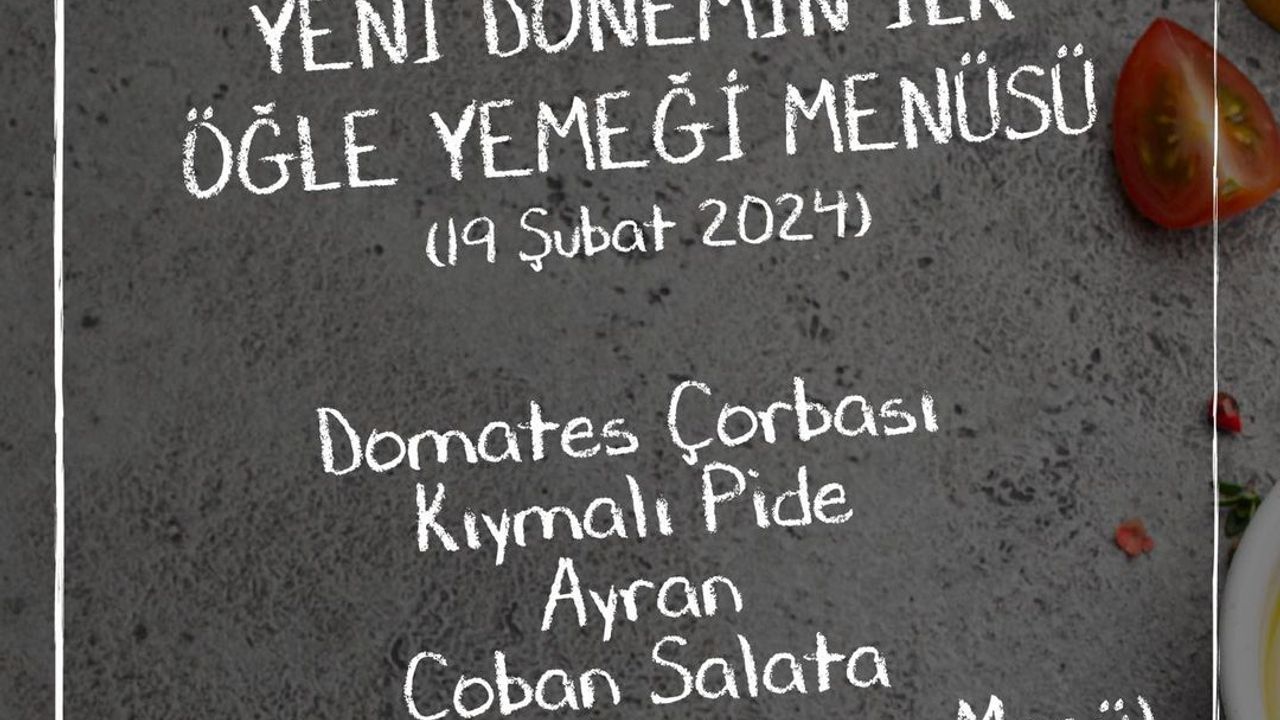 YENİ DÖNEMİN İLK
ÖĞLE YEMEĞİ MENÜSÜ
(19 Şubat 2024)
Domates Çorbası
Kıymalı Pide
Ayran
Çoban Salata